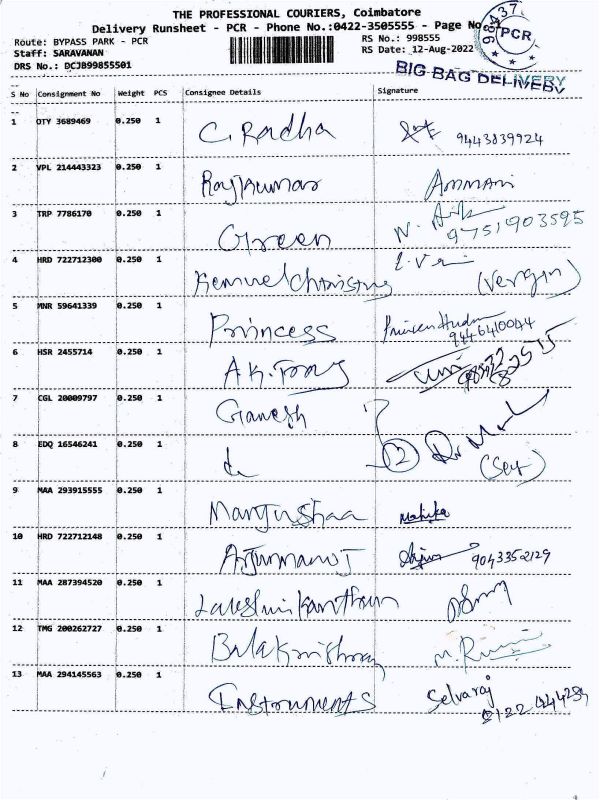 THE PROFESSIONAL COURIERS, Coimbatore
Delivery Runsheet - PCR - Phone No.:0422-3505555 - Page No
Route: BYPASS PARK - PCR RS No.: 998555
Staff: SARAVANAN RS Date: 12-Aug-2022
DRS No.: DCJB99855501
PCR
BIG BAG DELIVERY
S No Consignment No Weight PCS Consignee Details Signature
1 OTY 3689469 0.250 1 C. Radha 9443839924
2 VPL 214443323 0.250 1 Rajkumar Ammani
3 TRP 7786170 0.250 1 Green N. 9751903595
4 HRD 722712300 0.250 1
5 MNR 59641339 0.250 1 Princess 9446410044
6 HSR 2455714 0.250 1
7 CGL 20009797 0.250 1 Ganesh
8 EDQ 16546241 0.250 1 2
9 MAA 293915555 0.250 1 Manjushaa
10 HRD 722712148 0.250 1 9043352129
11 MAA 287394520 0.250 1
12 TMG 200262727 0.250 1 Balakrishnan
13 MAA 294145563 0.250 1 Instruments Selvaraj